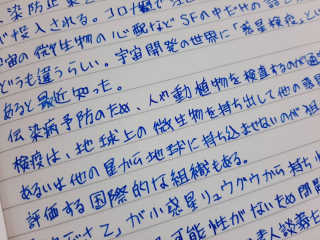 染防止策
が投入される。コロナ禍で注
宇宙の微生物の心配などSFの中だけの話と
どうも違うらしい。宇宙開発の世界に「惑星検疫」とい
あると最近知った。
伝染病予防のため、人や動植物を検査するのが通
検疫は、地球上の微生物を持ち出して他の惑星
あるいは他の星から地球に持ち込まないのが
評価する国際的な組織もある。
が小惑星リュウグウから持ち
可能性がないため問